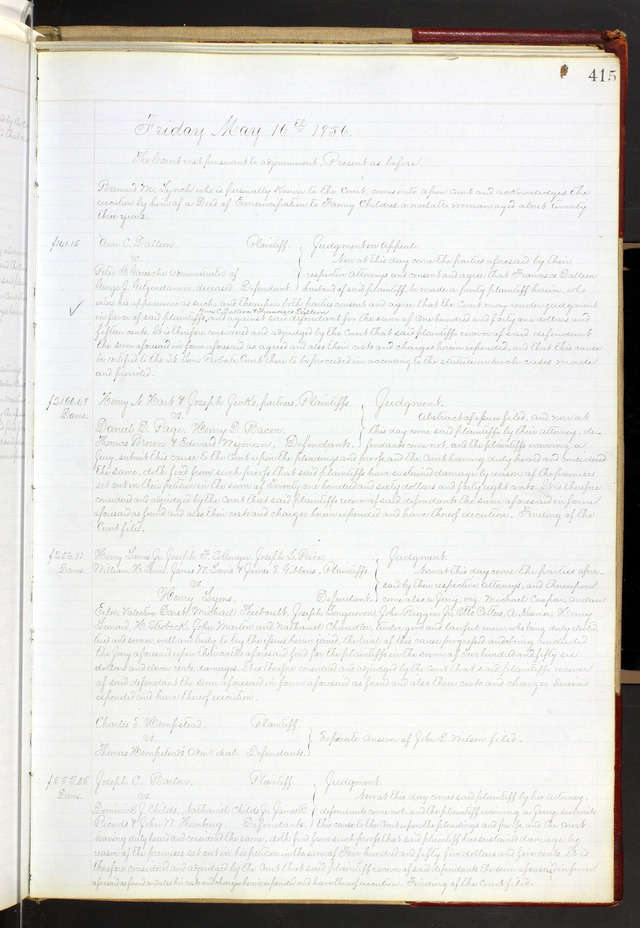 415
Friday May 16th 1856.
The Court met pursuant to adjournment, Present as before.
Bernard M. Lynch who is personally known to the Court, comes into open Court and acknowledges the
execution by him of a Deed of Emancipation to Fanny Childres, a mulatto woman aged about twenty
three years.
$141.15 Ann C. Dallam. Plaintiff Judgment on Appeal.
vs. Now at this day come the parties aforesaid by their
Peter A. Administrator of respective Attorneys and consent and agree that Francis Dallam
George J. deceased Defendant husband of said plaintiff be made a party plaintiff herein, who
enters his appearance as such, and thereupon both parties consent and agree that the Court may render judgment
Ann C. Dallam & Francis Dallam
in favor of said plaintiffs, and against said defendant for the sum of One hundred and forty one dollars and
fifteen cents. It is therefore considered and adjudged by the Court that said plaintiffs recover of said defendant
the sum aforesaid in form aforesaid as agreed and also their costs and charges herein expended, and that this cause
be certified to the St. Louis Probate Court there to be proceeded in according to the statute in such cases made
and provided.
$2160.48 Henry N. Hart & Joseph partners, Plaintiffs Judgment.
Dams. vs. Abstract of issue filed, and now at
Daniel D. Page, Henry D. Bacon, this day come said plaintiffs by their Attorney, de-
Thomas Brown & Edward Wyman, Defendants. fendants come not, and the plaintiffs waiving a
Jury, submit this cause to the Court upon the pleadings and proofs, and the Court having duly heard and considered
the same, doth find from such proofs that said plaintiffs have sustained damage by reason of the premises
set out in their petition in the sum of Twenty one hundred and sixty dollars and forty eight cents. It is therefore
considered and adjudged by the Court that said plaintiffs recover of said defendants the sum aforesaid in form
aforesaid as found and also their costs and charges herein expended and have thereof execution. Finding of the
Court filed.
$256.11 Henry Jr. Joseph F. Joseph L. Judgment.
Dams. William H. James N. & James E. Gibbons, Plaintiffs Now at this day come the parties afore-
vs. said by their respective attorneys, and thereupon
Henry Lyons. Defendant. comes also a Jury, viz, Michael Andrew
Valentine Michael Joseph John Otto A. Francis Henry
Edward H. John Martin and Nathaniel Chandler, twelve good and lawful men, who being duly elected,
tried and sworn, well and truly to try the issues herein joined, the trial of this cause progressed and being concluded
the Jury aforesaid upon their oaths aforesaid find for the plaintiffs in the sum of two hundred and fifty six
dollars and eleven cents, damages, it is therefore considered and adjudged by the Court that said plaintiffs recover
of said defendant the sum aforesaid in form aforesaid as found and also their costs and charges herein
expended and have thereof execution.
Charles S. Hempstead. Plaintiff.
vs. Separate Answer of John D. Wilson filed.
Thomas Hempstead's Admr et al. Defendants.
$555.05 Joseph C. Barlow. Plaintiff Judgment.
Dams. vs. Now at this day comes said plaintiff by his Attorney,
Dominick J. Childs, Nathaniel Childs Jr. James R. defendants come not, and the plaintiff waiving a Jury, submits
& John N. Defendants this cause to the Court upon the pleadings and proofs, and the Court
having duly heard and considered the same, doth find from such proofs that said plaintiff has sustained damage by
reason of the premises set out in his petition in the sum of Five hundred and fifty five dollars and five cents. It is
therefore considered and adjudged by the Court that said plaintiff recover of said defendants the sum aforesaid in form
aforesaid as found and also his costs and charges herein expended and have thereof execution. Finding of the Court filed.